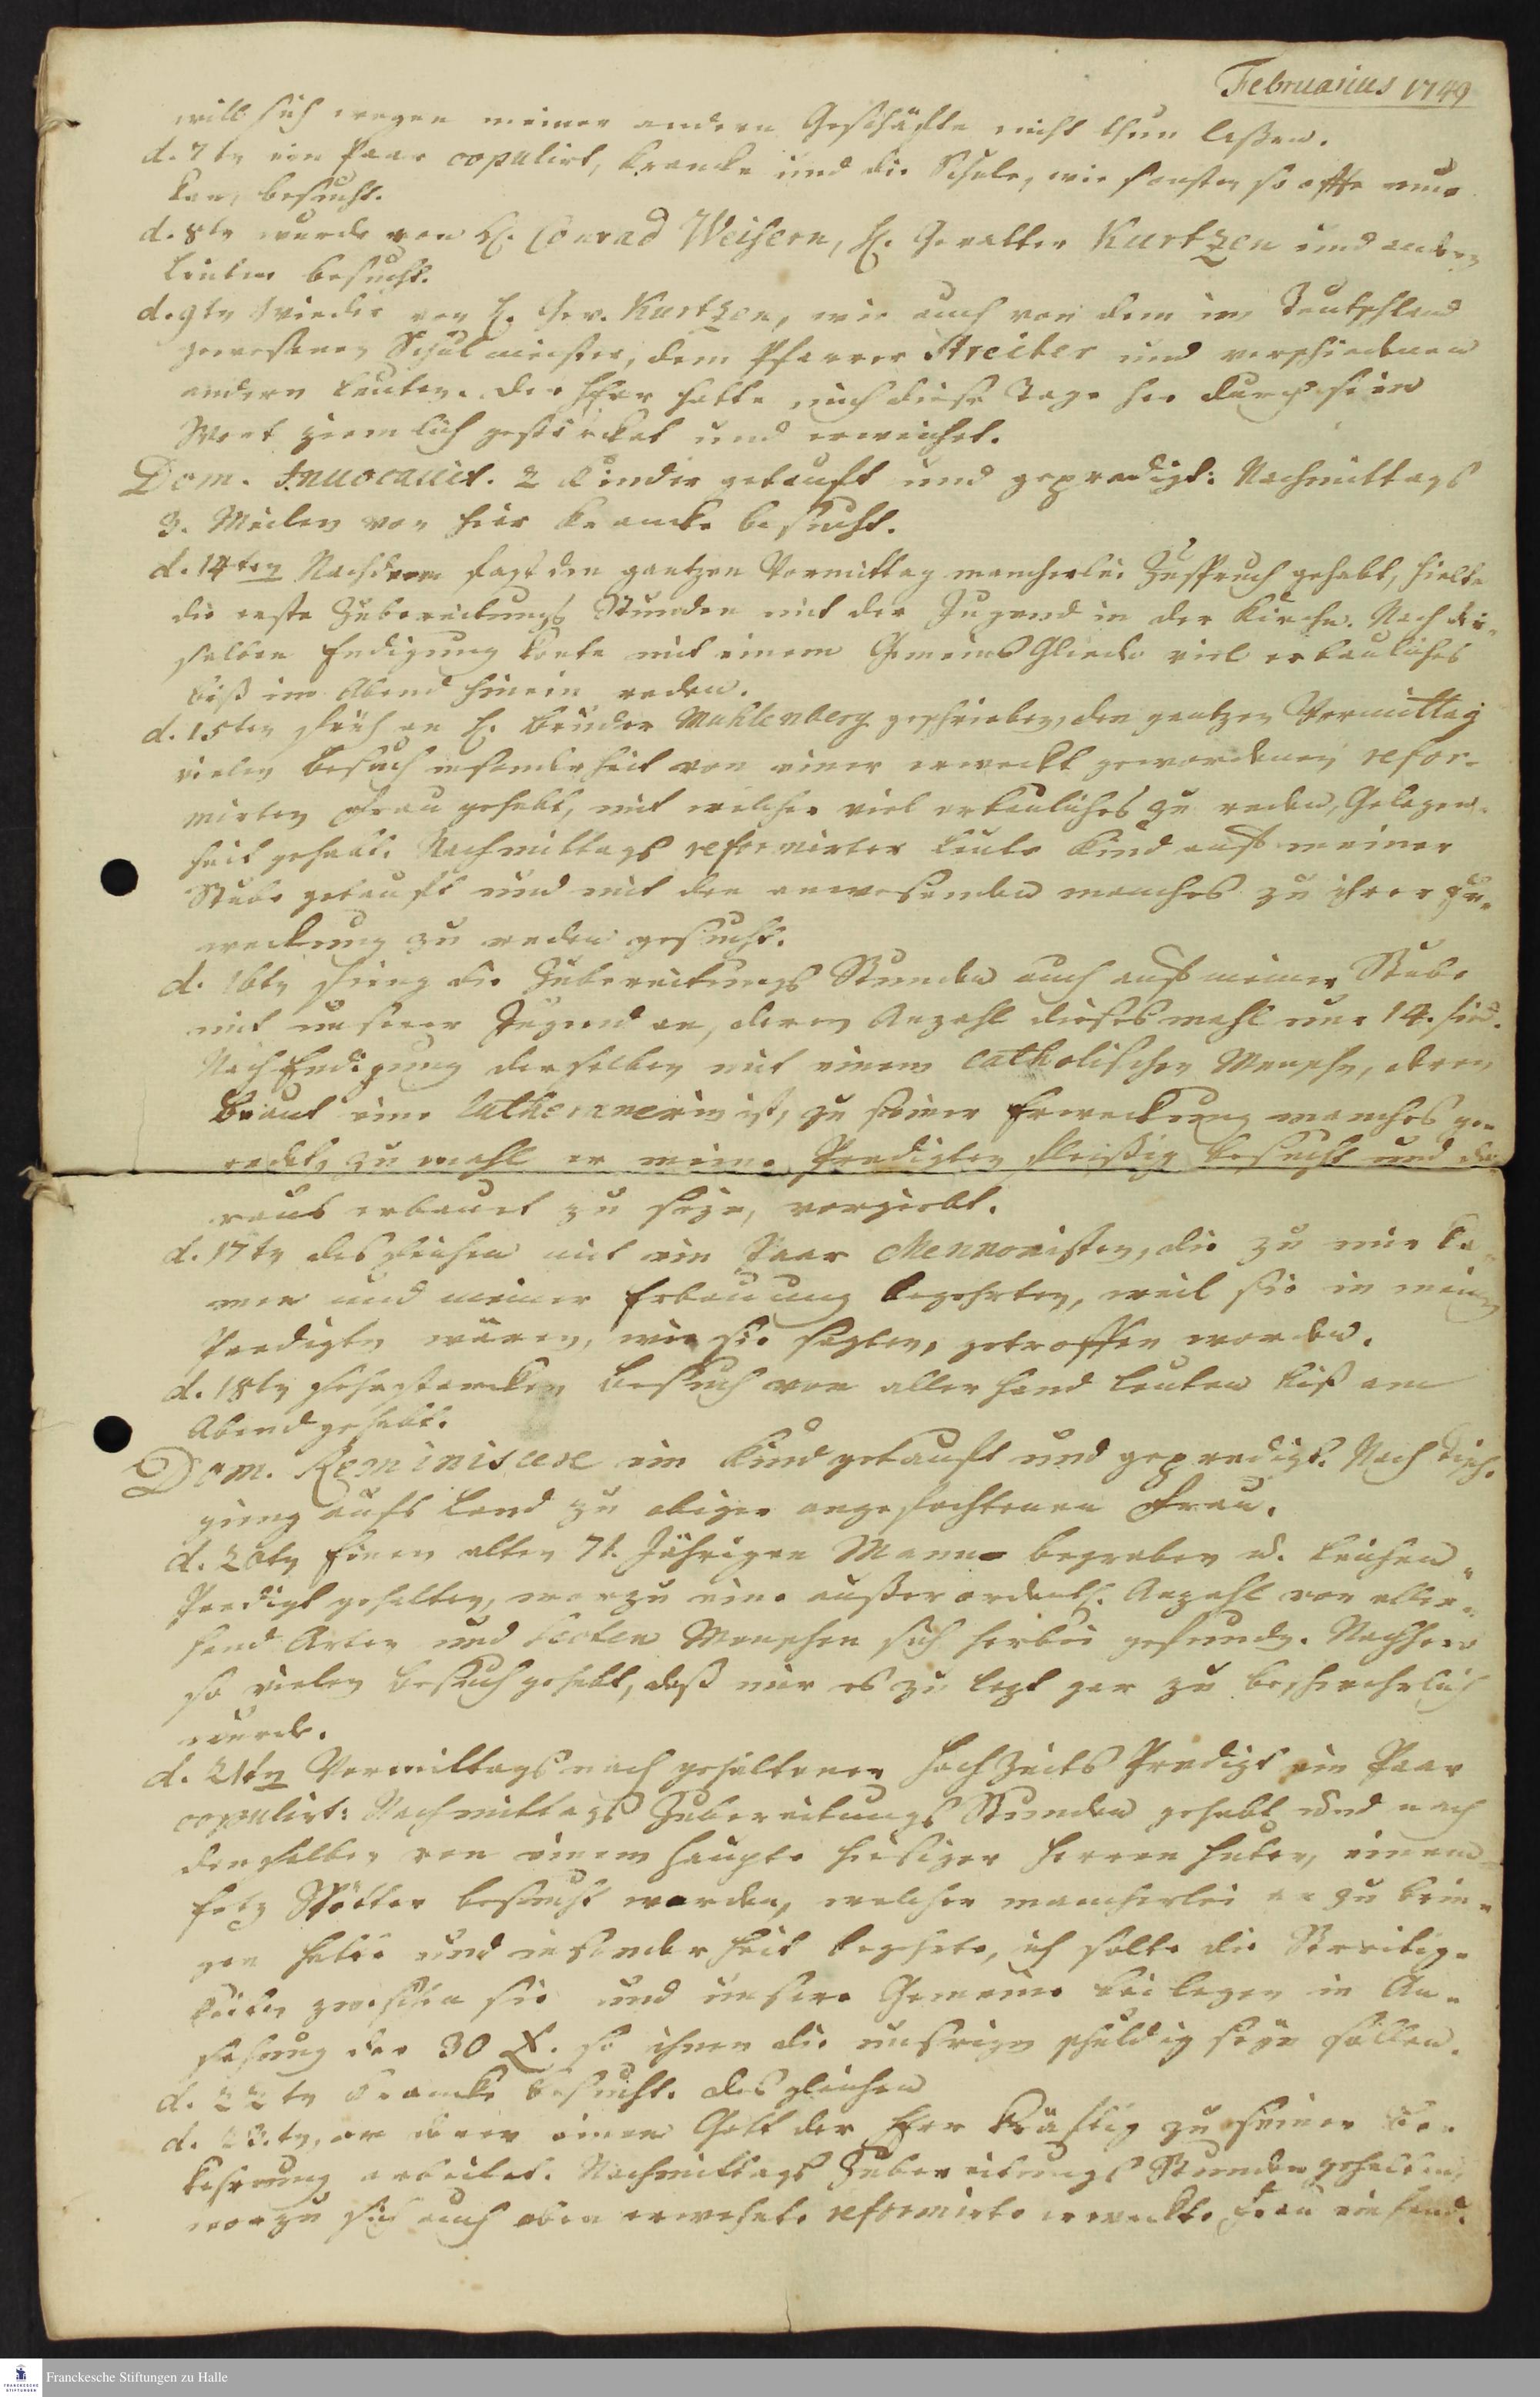 Februarius 1749
will sich wegen meiner andern Geschäffte nicht thun laßen.
d. 7tn ein Paar copulirt, Krancke und die Schule, wie sonsten so offte nur
kan, besucht.
d. 8tn wurde von H. Conrad Weisern, H. Gevatter Kurtzen und andern
Leuten besucht.
d. 9tn wieder von H. Gev. Kurtzen, wie auch von dem in Teutschland
gewesenen Schulmeister, dem Pfarrer Streiter und verschiedenen
andern Leuten. Der Herr hatte mich diese Tage her durch sein
Wort ziemlich gestärcket und erweichet.
Dom. Invocavit. 2 Kinder getauft und gepredigt: Nachmittags
3. Meilen von hier Krancke besucht.
d. 14ten Nachdem fast den gantzen Vormittag mancherlei Zuspruch gehabt, hielte
die erste Zubereitungs Stunden mit der Jugend in der Kirche. Nach der-
selben Endigung konte mit einem Gemeins Gliede viel erbauliches
biß in Abend hinein reden.
d. 15ten früh an H. Bruder Muhlenberg geschrieben, den gantzen Vormittag
vielen Besuch insonderheit von einer erweckt gewordenen refor-
mirten Frau gehabt, mit welcher viel erbauliches zu reden, Gelegen-
heit gehabt. Nachmittags reformirter Leute Kind auf meiner
Stube getauft und mit den anwesenden manches zu ihrer Er-
weckung zu reden gesucht.
d. 16tn fieng die Zubereitungs Stunden auch auf meiner Stube
mit unserer Jugend an, deren Anzahl dieses mahl nur 14. sind.
Nach Endigung derselben mit einem catholischen Menschen, deren
Braut eine Lutheranerin ist, zu seiner Erweckung manches ge-
redet, zu mahl er meine Predigten fleißig besucht und da-
raus erbauet zu seyn, vorgiebt.
d. 17tn desgleichen mit ein Paar Mennonisten, die zu mir ka-
men und meiner Erbauung begehrten, weil sie in meinen
Predigten wären, wie sie sagten, getroffen worden.
d. 18tn Besuch von allerhand Leuten biß am
Abend gehabt.
Dom. Reminiscere ein Kind getauft und gepredigt. Nach Tisch
gieng aufs Land zu obiger angefochtenen Frau.
d. 20tn Einen alten 71. Jährigen Mann begraben u. Leichen-
Predigt gehalten, worzu eine außerordentl. Anzahl von aller-
hand Arten und Secten Menschen sich herbei gefunden. Nachher
so vielen Besuch gehabt, daß mir es zu lezt gar zu beschwehrlich
wurde.
d. 21tn Vormittags nach gehaltener Hochzeits Predigt ein Paar
copulirt: Nachmittags Zubereitungs Stunden gehabt und nach
denselben von einem Haupte hiesiger Herrenhuter, einem
Spötter besucht worden, welcher mancherlei an zu brin-
gen hatte und insonderheit begehrte, ich sollte die Streitig-
keiten zwischen sie und unsere Gemeine bei legen in An-
sehung der 30 £. so ihnen die unsrigen schuldig seyn sollen.
d. 22tn Krancke besucht. desgleichen
d. 23.tn, an deren einen Gott der Herr kräftig zu seiner Be-
kehrung arbeitet. Nachmittags Zubereitungs Stunden gehalten,
worzu sich auch oben erwehnte reformirte erweckte Frau einfand.
Franckesche Stiftungen zu Halle